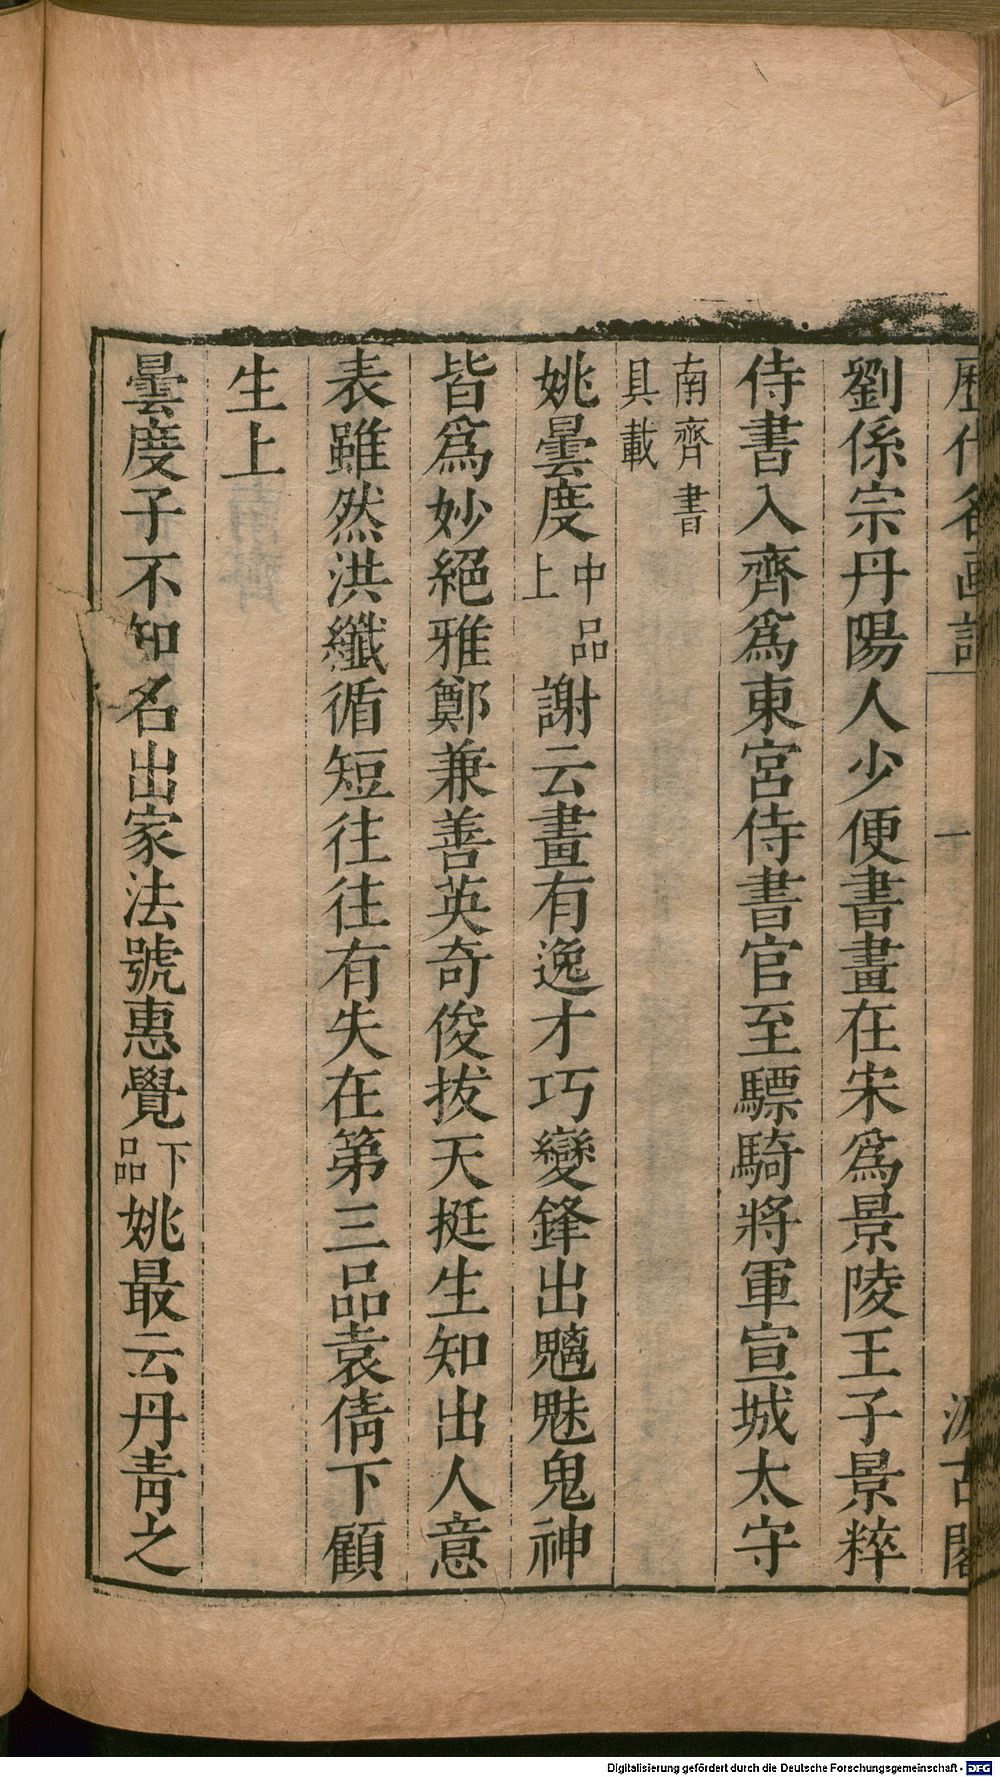 歷代名畫記 一 汲古閣
劉係宗丹陽人少便書畫在宋爲景陵王子景粹
侍書入齊爲東宮侍書官至驃騎將軍宣城太守
南齊書
具載
姚曇度中品上謝云畫有逸才巧變鋒出魑魅鬼神
皆爲妙絕雅鄭兼善英奇俊拔天挺生知出人意
表雖然洪纖循短往往有失在第三品袁倩下顧
生上
曇度子不知名出家法號惠覺下品姚最云丹青之
Digitalisierung gefördert durch die Deutsche Forschungsgemeinschaft - DFG